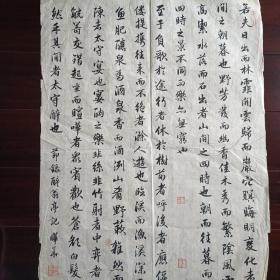 若夫日出而林霏開雲歸而岩穴暝晦明變化者
間之朝暮也野芳發而幽香佳木秀而繁陰風
高潔水落而石出者山間之四時也朝而往暮而
四時之景不同而樂亦無窮也
至于負歌於途行者休於樹前者呼後者應傴
僂提攜往來而不絕者滁人遊也臨溪而漁溪深
魚肥釀泉為酒泉香而酒洌山肴野蔌雜然而
陳者太守宴也宴酣之樂非絲非竹射者中弈者
觥籌交錯起坐而喧嘩者衆賓歡也蒼顏白髮
然乎其間者太守醉也 節錄醉翁亭記